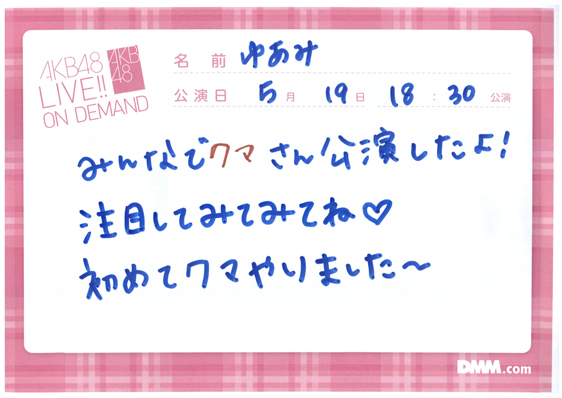 AKB48
LIVE!!
ON DEMAND
AKB
48
名前 ゆあみ
公演日 5月 19日 18:30 公演
みんなでクマさん公演したよ!
注目してみてみてね♡
初めてクマやりました〜
DMM.com